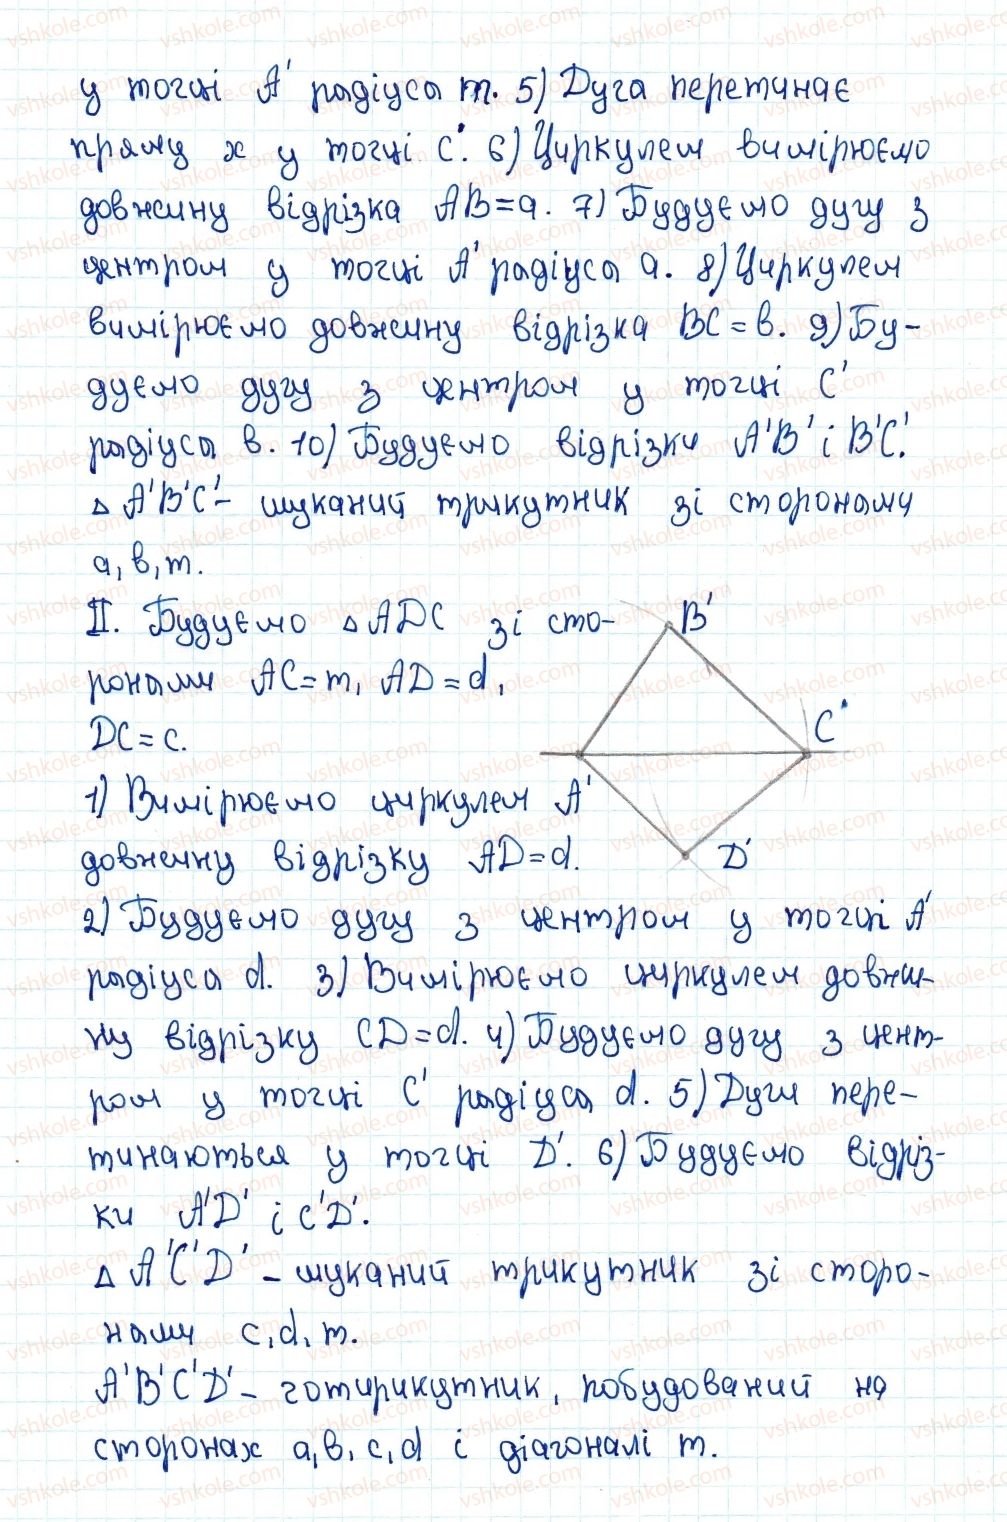 у точці A' радіуса m. 5) Дуга перетинає
пряму x у точці C'. 6) Циркулем вимірюємо
довжину відрізка AB=a. 7) Будуємо дугу з
центром у точці A' радіуса a. 8) Циркулем
вимірюємо довжину відрізка BC=в. 9) Бу-
дуємо дугу з центром у точці C'
радіуса в. 10) Будуємо відрізки A'B' і B'C'.
△A'B'C' – шуканий трикутник зі сторонами
a, в, m.
II. Будуємо △ADC зі сто-
ронами AC=m, AD=d,
DC=c.
1) Вимірюємо циркулем
довжину відрізку AD=d.
B'
C'
A'
D'
2) Будуємо дугу з центром у точці A'
радіуса d. 3) Вимірюємо циркулем довжи-
ну відрізку CD=d. 4) Будуємо дугу з цент-
ром у точці C' радіуса d. 5) Дуги пере-
тинаються у точці D'. 6) Будуємо відріз-
ки A'D' і C'D'.
△A'C'D' – шуканий трикутник зі сторо-
нами c, d, m.
A'B'C'D' – чотирикутник, побудований на
сторонах a, в, c, d і діагоналі m.